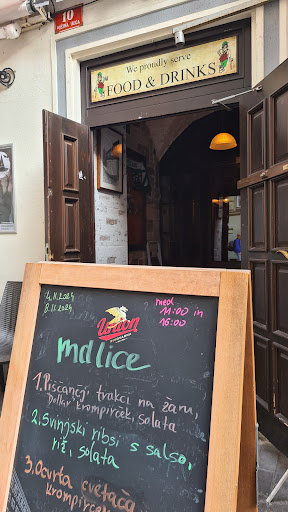 10
We proudly serve
FOOD & DRINKS
4.11.2024
8.11.2024
med
11:00 in
16:00
Union
malice
1. Piščančji trakci na žaru,
krompirček, solata
2. Svinjski ribsi s salso,
riž, solata
3. Ocvrta cvetača
krompirček